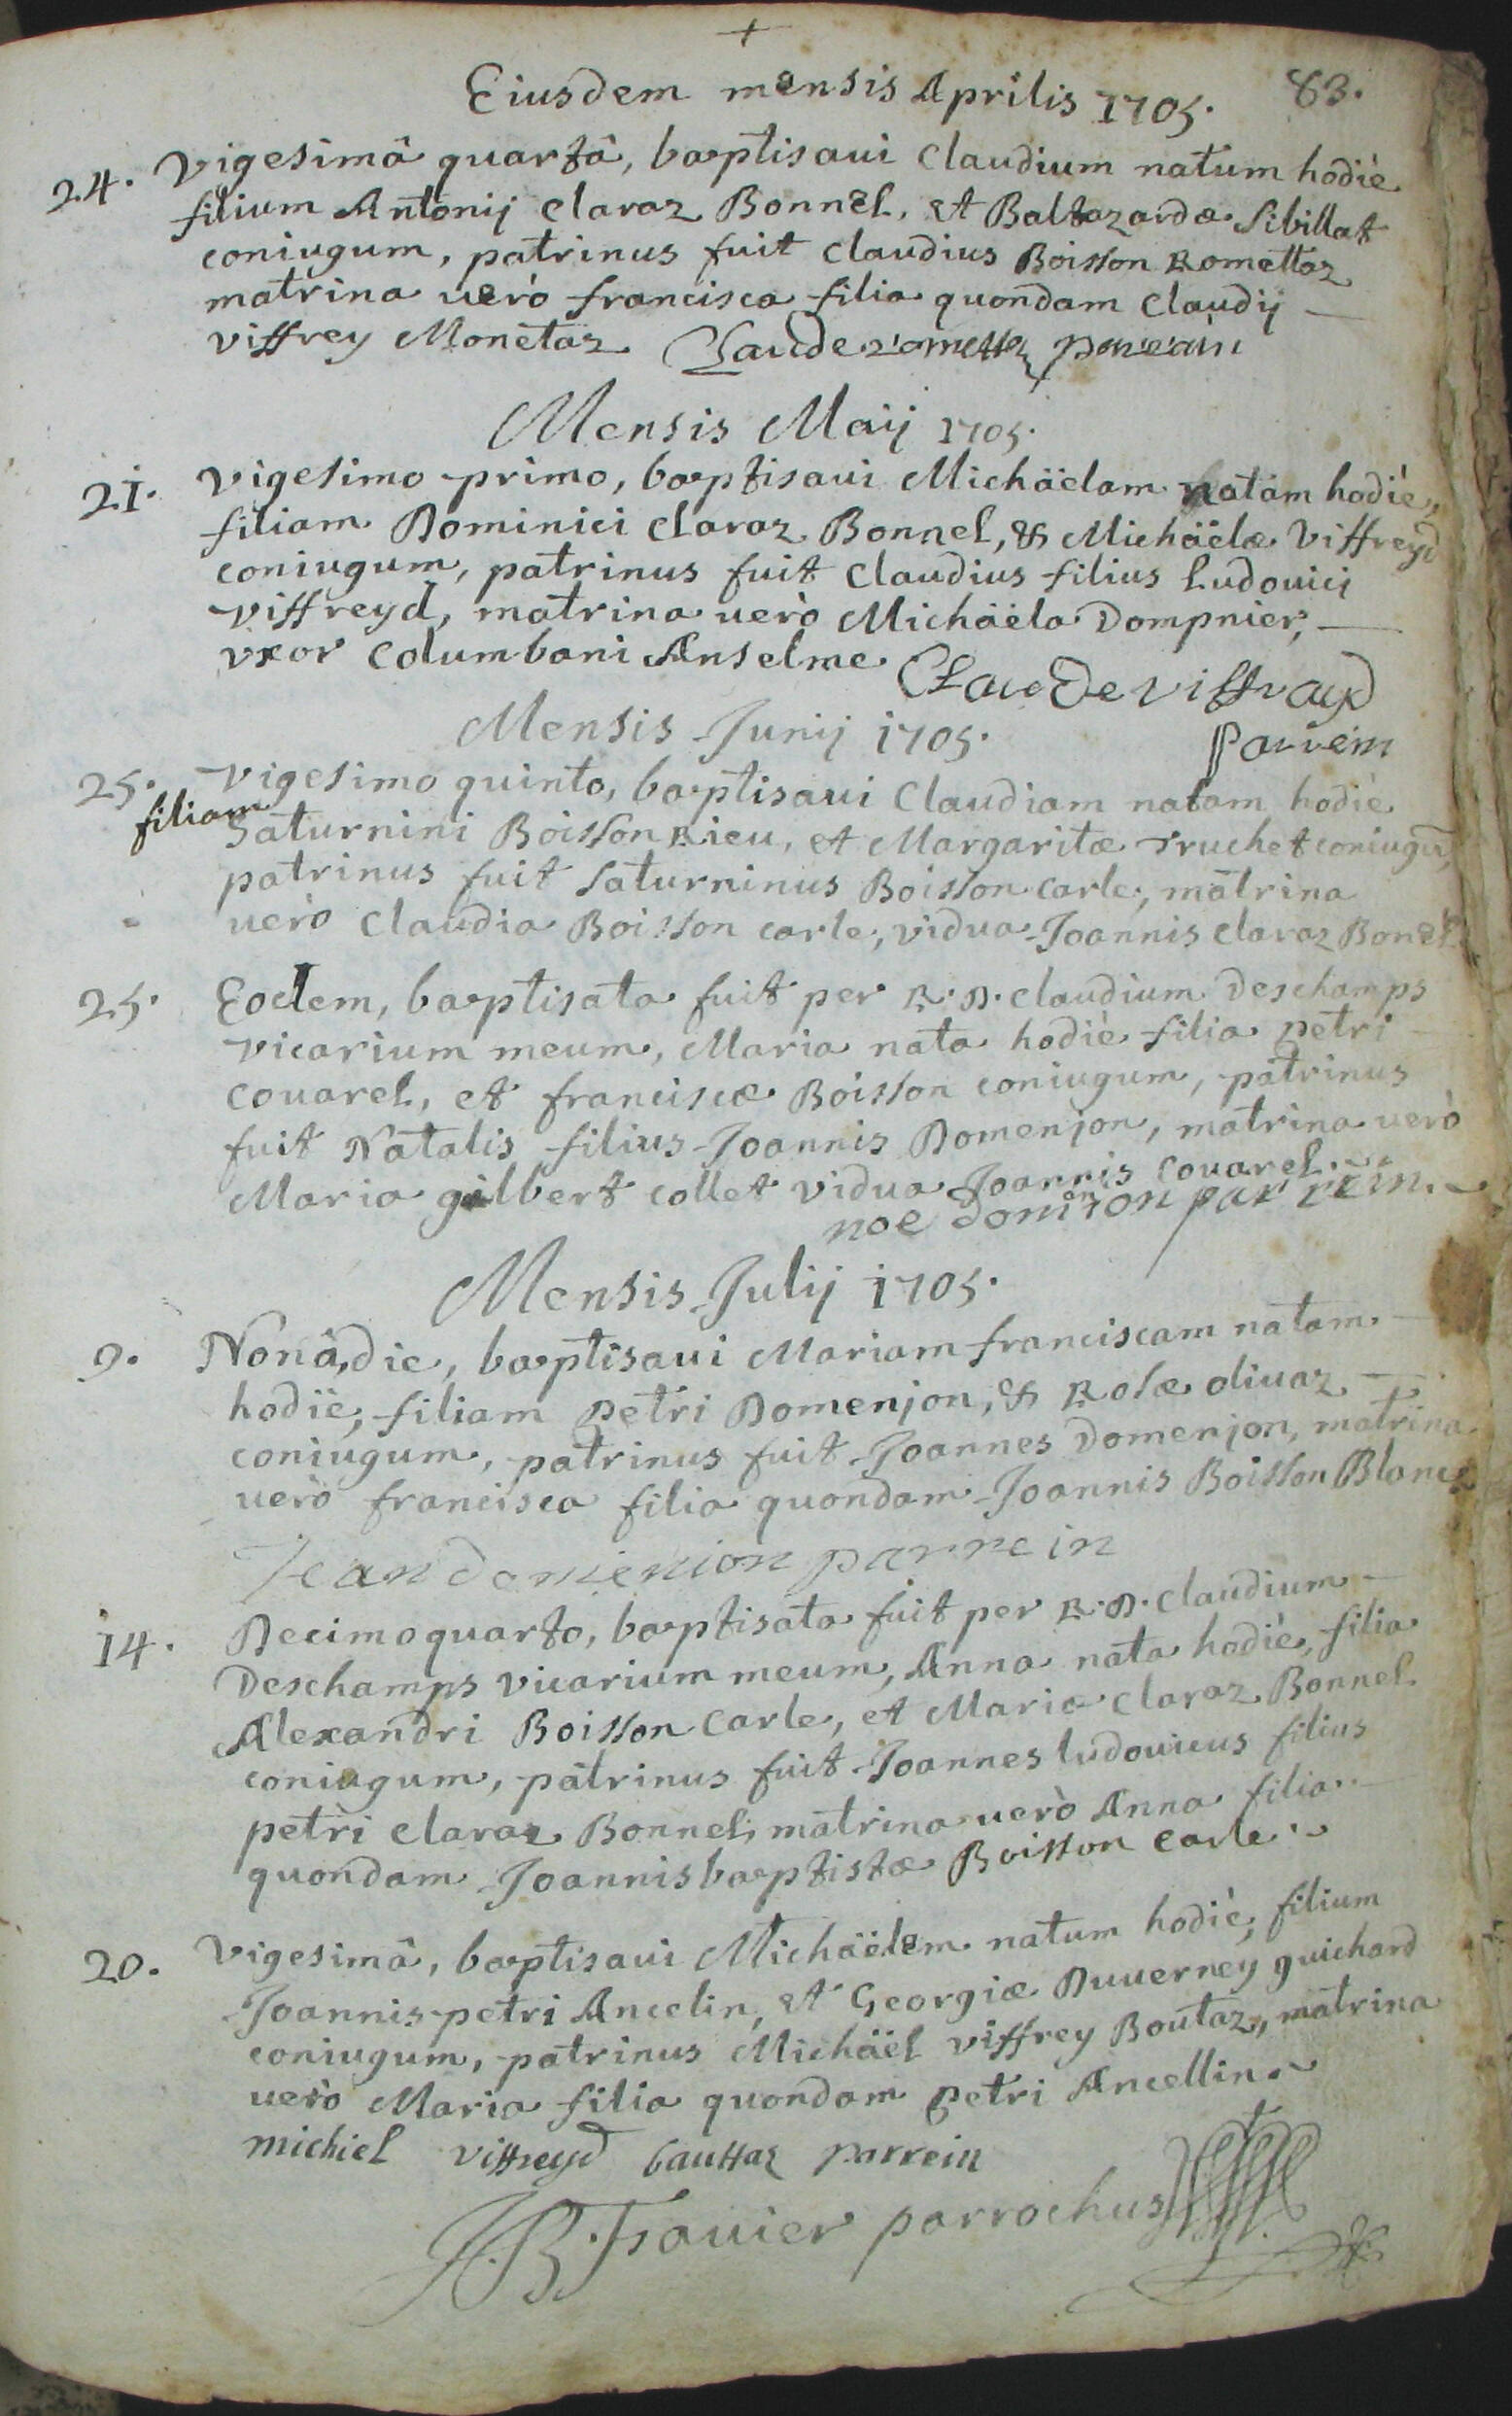 Eiusdem mensis Aprilis 1705. 83.
24. Vigesimâ quartâ, baptisaui Claudium natum hodiè
filium Antonij Claraz Bonnel, et Baltazardæ Sibillat
coniugum, patrinus fuit Claudius Boisson Romettaz
matrina uerò francisca filia quondam Claudij
Viffrey Monetaz Claude romettaz
Mensis Maij 1705.
21. Vigesimo primo, baptisaui Michäelam natam hodiè,
filiam Dominici Claraz Bonnel, & Michäelæ Viffreyd
coniugum, patrinus fuit Claudius filius Ludouici
Viffreyd, matrina uerò Michäela Dompnier,
vxor Columbani Anselme Claude viffrayd
Mensis Junij 1705. parrein
25. Vigesimo quinto, baptisaui Claudiam natam hodiè
filiam Saturnini Boisson Rieu, et Margaritæ Truchet coniugũ,
patrinus fuit Saturninus Boisson Carle, matrina
uerò Claudia Boisson Carle, vidua Joannis Claraz Bonel
25. Eodem, baptisata fuit per R. D. Claudium Deschamps
vicarium meum, Maria nata hodiè filia petri
Couarel, et franciscæ Boisson coniugum, patrinus
fuit Natalis filius Joannis Domenjon, matrina uerò
Maria gilbert collet vidua Joannis Couarel.
noe domenion parrein.
Mensis Julij 1705.
9. Nonâ die, baptisaui Mariam franciscam natam
hodiè, filiam petri Domenjon, & Rosæ oliuaz
coniugum, patrinus fuit Joannes Domenjon, matrina
uerò francisca filia quondam Joannis Boisson Blanc
Jean domenion parrein
14. Decimo quarto, baptisata fuit per R. D. Claudium
Deschamps vicarium meum, Anna nata hodiè, filia
Alexandri Boisson Carle, et Mariæ Claraz Bonnel
coniugum, patrinus fuit Joannes ludouicus filius
petri Claraz Bonnel, matrina uerò Anna filia
quondam Joannis baptistæ Boisson Carle.
20. Vigesimâ, baptisaui Michäelem natum hodiè, filium
Joannis petri Ancelin, et Georgiæ Duuerney guichard
coniugum, patrinus Michäel viffrey Boutaz, matrina
uerò Maria filia quondam petri Ancellin.
michiel viffreyd bauttaz parrein
J.B. Favier parrochus